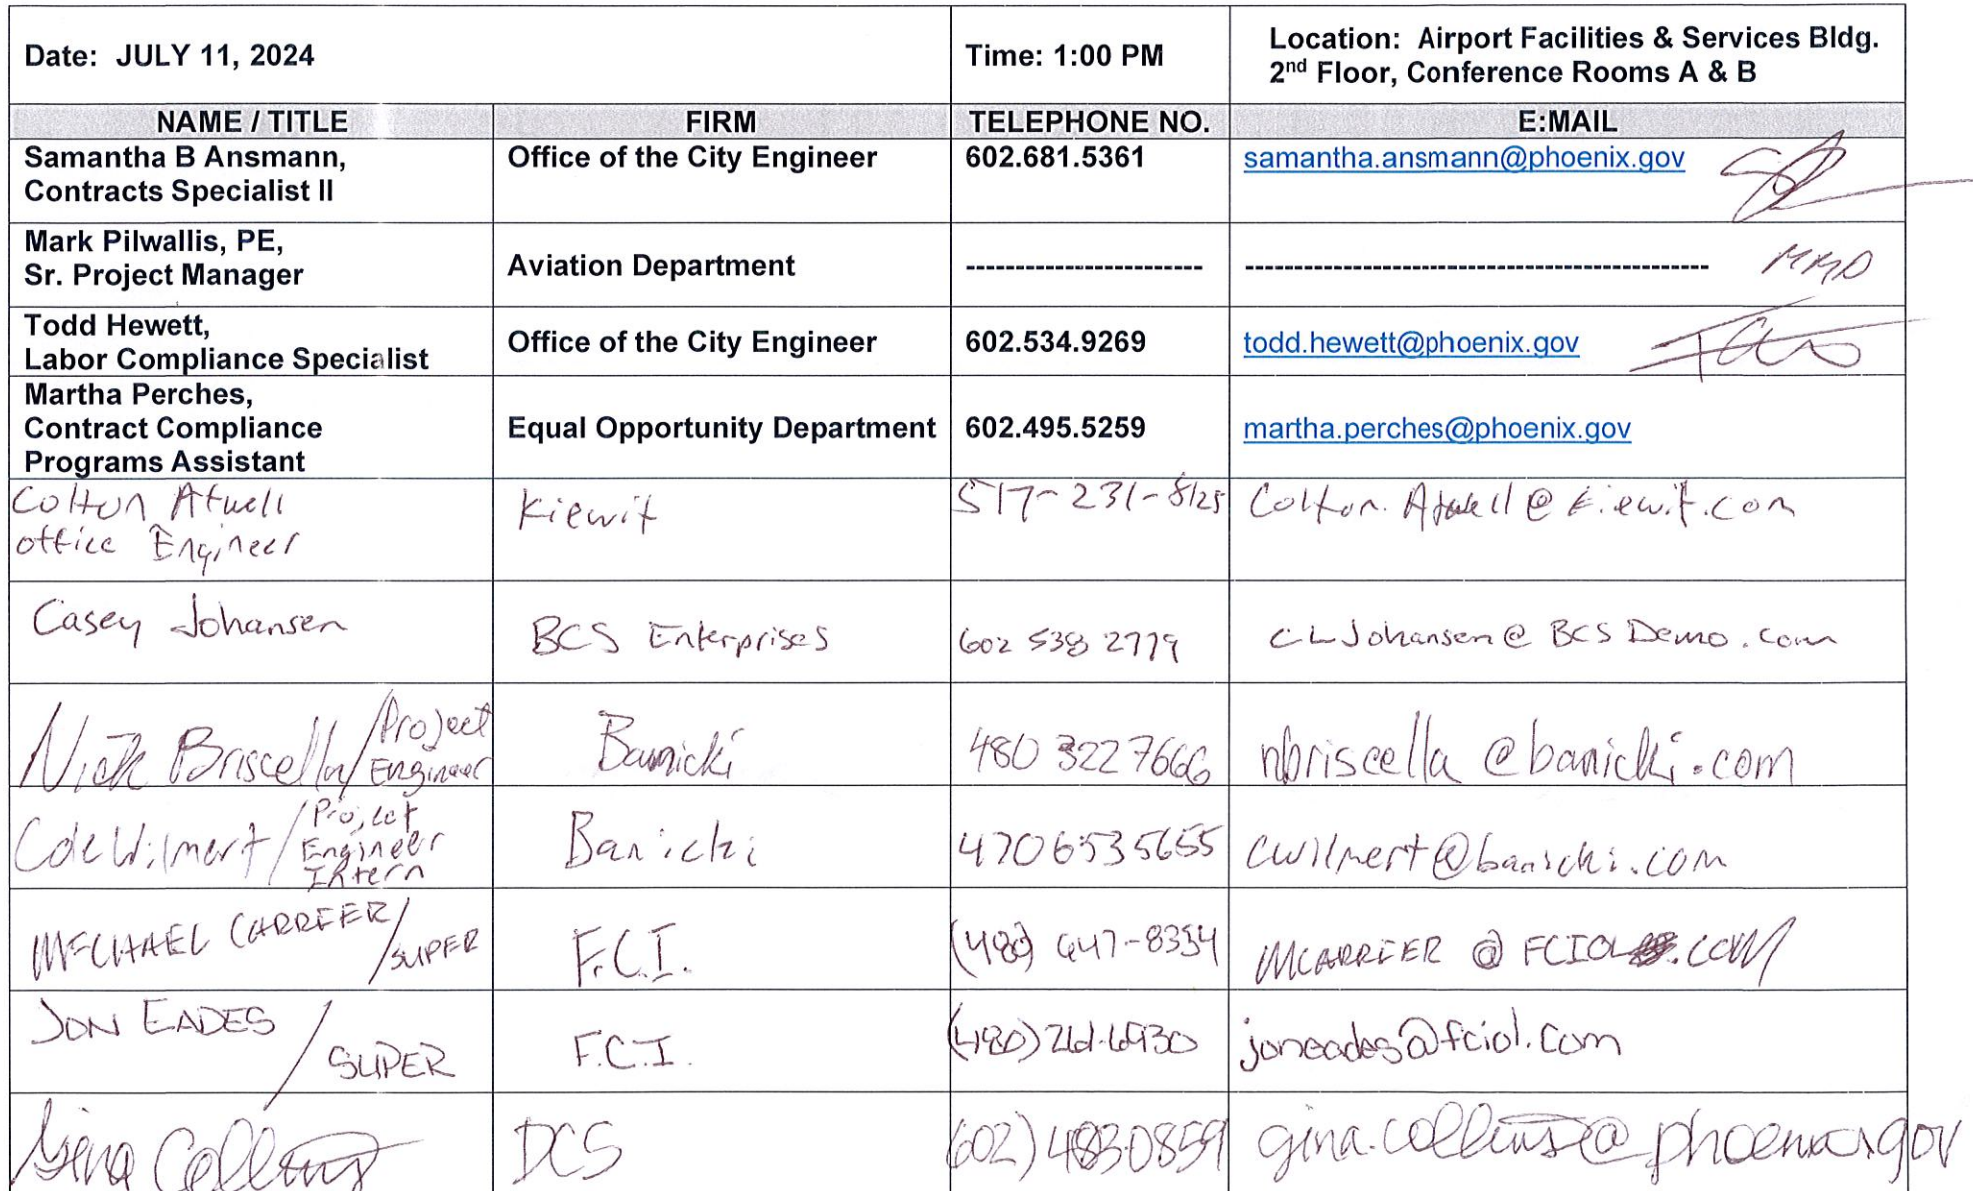 Date: JULY 11, 2024
Time: 1:00 PM
Location: Airport Facilities & Services Bldg.
2nd Floor, Conference Rooms A & B
NAME / TITLE FIRM TELEPHONE NO. E:MAIL
Samantha B Ansmann,
Contracts Specialist II
Office of the City Engineer
602.681.5361
samantha.ansmann@phoenix.gov
Mark Pilwallis, PE,
Sr. Project Manager
Aviation Department
------------------------
-----------------------------------------------
Todd Hewett,
Labor Compliance Specialist
Office of the City Engineer
602.534.9269
todd.hewett@phoenix.gov
Martha Perches,
Contract Compliance
Programs Assistant
Equal Opportunity Department
602.495.5259
martha.perches@phoenix.gov
Colton Atwell
office Engineer
Kiewit
517-231-8125
Colton.Atwell@kiewit.com
Casey Johansen
BCS Enterprises
602 538 2779
CLJohansen@BCSDemo.com
Nick Briscella/Project
Engineer
Banicki
480 322 7666
nbriscella@banicki.com
Cole Wilmert/Project
Engineer
Intern
Banicki
4706535655
cwilmert@banicki.com
MICHAEL CARREER/
SUPER
F.C.I.
(480) 647-8354
MCARREER@FCIOL.COM
JON EADES /
SUPER
F.C.I.
(480) 261-6930
joneades@fciol.com
Gina Collins
DCS
(602) 483-0859
gina.collins@phoenix.gov